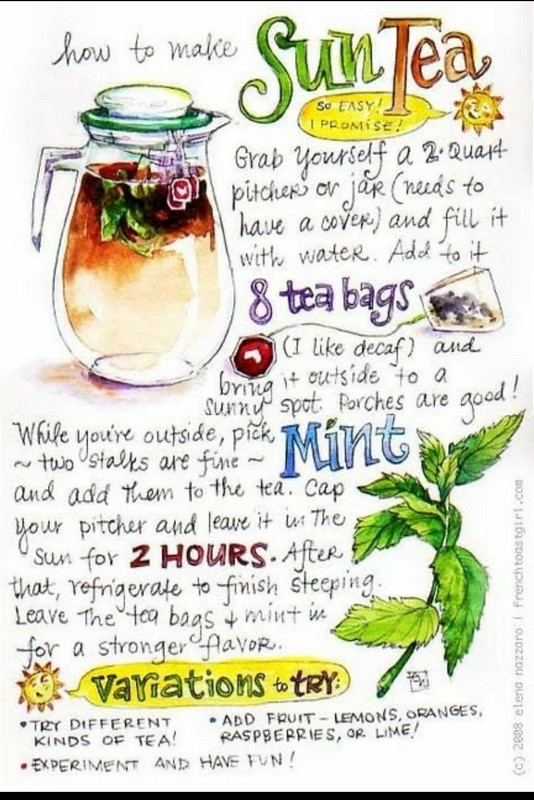 how to make Sun Tea
SO EASY!
I PROMISE!
Grab yourself a 2-Quart
pitcher or jar (needs to
have a cover) and fill it
with water. Add to it
8 tea bags
(I like decaf) and
bring it outside to a
sunny spot. Porches are good!
While you're outside, pick Mint
~ two stalks are fine ~
and add them to the tea. Cap
your pitcher and leave it in the
sun for 2 HOURS. After
that, refrigerate to finish steeping.
Leave the tea bags + mint in
for a stronger flavor.
Variations to TRY:
• TRY DIFFERENT
KINDS OF TEA!
• ADD FRUIT - LEMONS, ORANGES,
RASPBERRIES, OR LIME!
• EXPERIMENT AND HAVE FUN!
(c) 2008 elena nazzaro | frenchtoastgirl.com